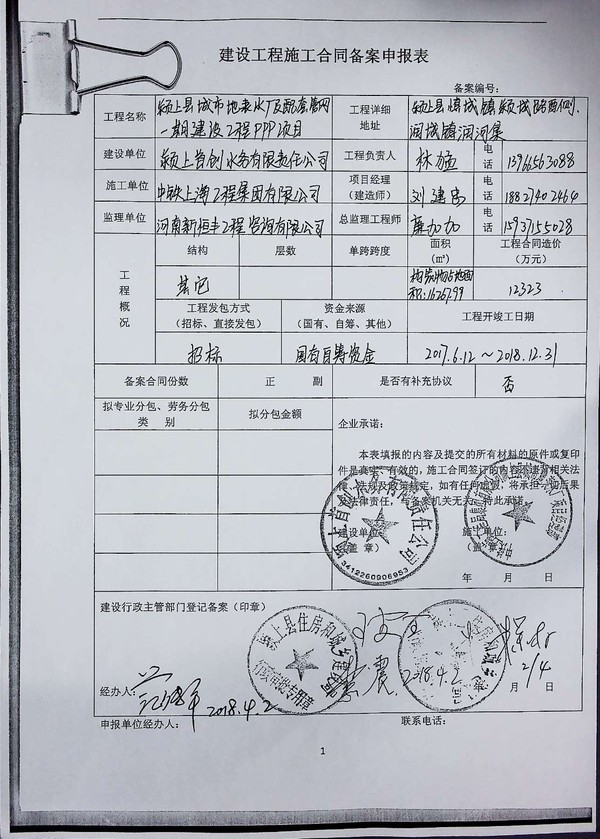 建设工程施工合同备案申报表
备案编号:
工程名称 颍上县城市地表水厂及配套管网一期建设工程PPP项目 工程详细地址 颍上县慎城镇颍城路西侧、润河镇润河集
建设单位 颍上首创水务有限责任公司 工程负责人 电话 13966563088
施工单位 中铁上海工程集团有限公司 项目经理(建造师) 电话 18827402464
监理单位 河南新恒丰工程咨询有限公司 总监理工程师 电话 15937155028
工程概况 结构 层数 单跨跨度 面积(㎡) 工程合同造价(万元)
其它 构筑物占地面积: 12323
工程发包方式(招标、直接发包) 资金来源(国有、自筹、其他) 工程开竣工日期
招标 国有自筹资金 2017.6.12~2018.12.31
备案合同份数 正 副 是否有补充协议 否
拟专业分包、劳务分包类 别 拟分包金额
企业承诺:
本表填报的内容及提交的所有材料的原件或复印
件是真实、有效的,施工合同签订的内容不违背相关法
律、法规及政策规定,如有任何虚假,将承担一切后果
及法律责任,与备案机关无关,特此承诺。
建设单位: 施工单位:
(盖 章) (盖 章)
颍上首创水务有限责任公司
3412260906953
年 月 日
建设行政主管部门登记备案(印章)
颍上县住房和城乡建设局
行政审批专用章
经办人: 2018.4.2 2018.4.2 2/4
月 日
申报单位经办人: 联系电话:
1